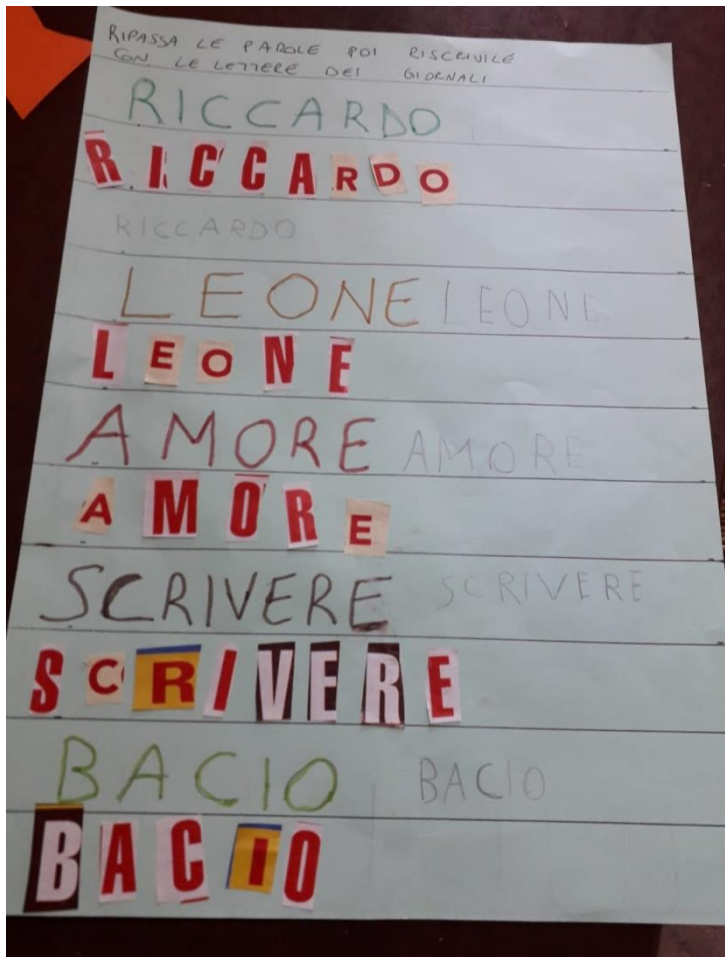 RIPASSA LE PAROLE POI RISCRIVILE
CON LE LETTERE DEI GIORNALI
RICCARDO
RICCARDO
RICCARDO
LEONE LEONE
LEONE
AMORE AMORE
AMORE
SCRIVERE SCRIVERE
SCRIVERE
BACIO BACIO
BACIO